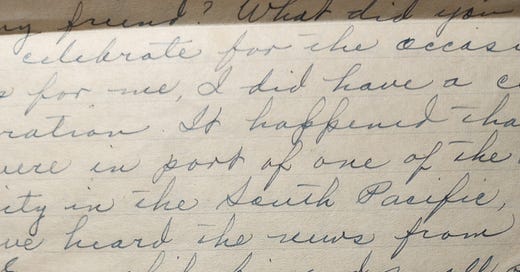 my friend? What did you
celebrate for the occasi
s for me, I did have a c
ration. It happened tha
were in port of one of the
ity in the South Pacific,
ve heard the news from